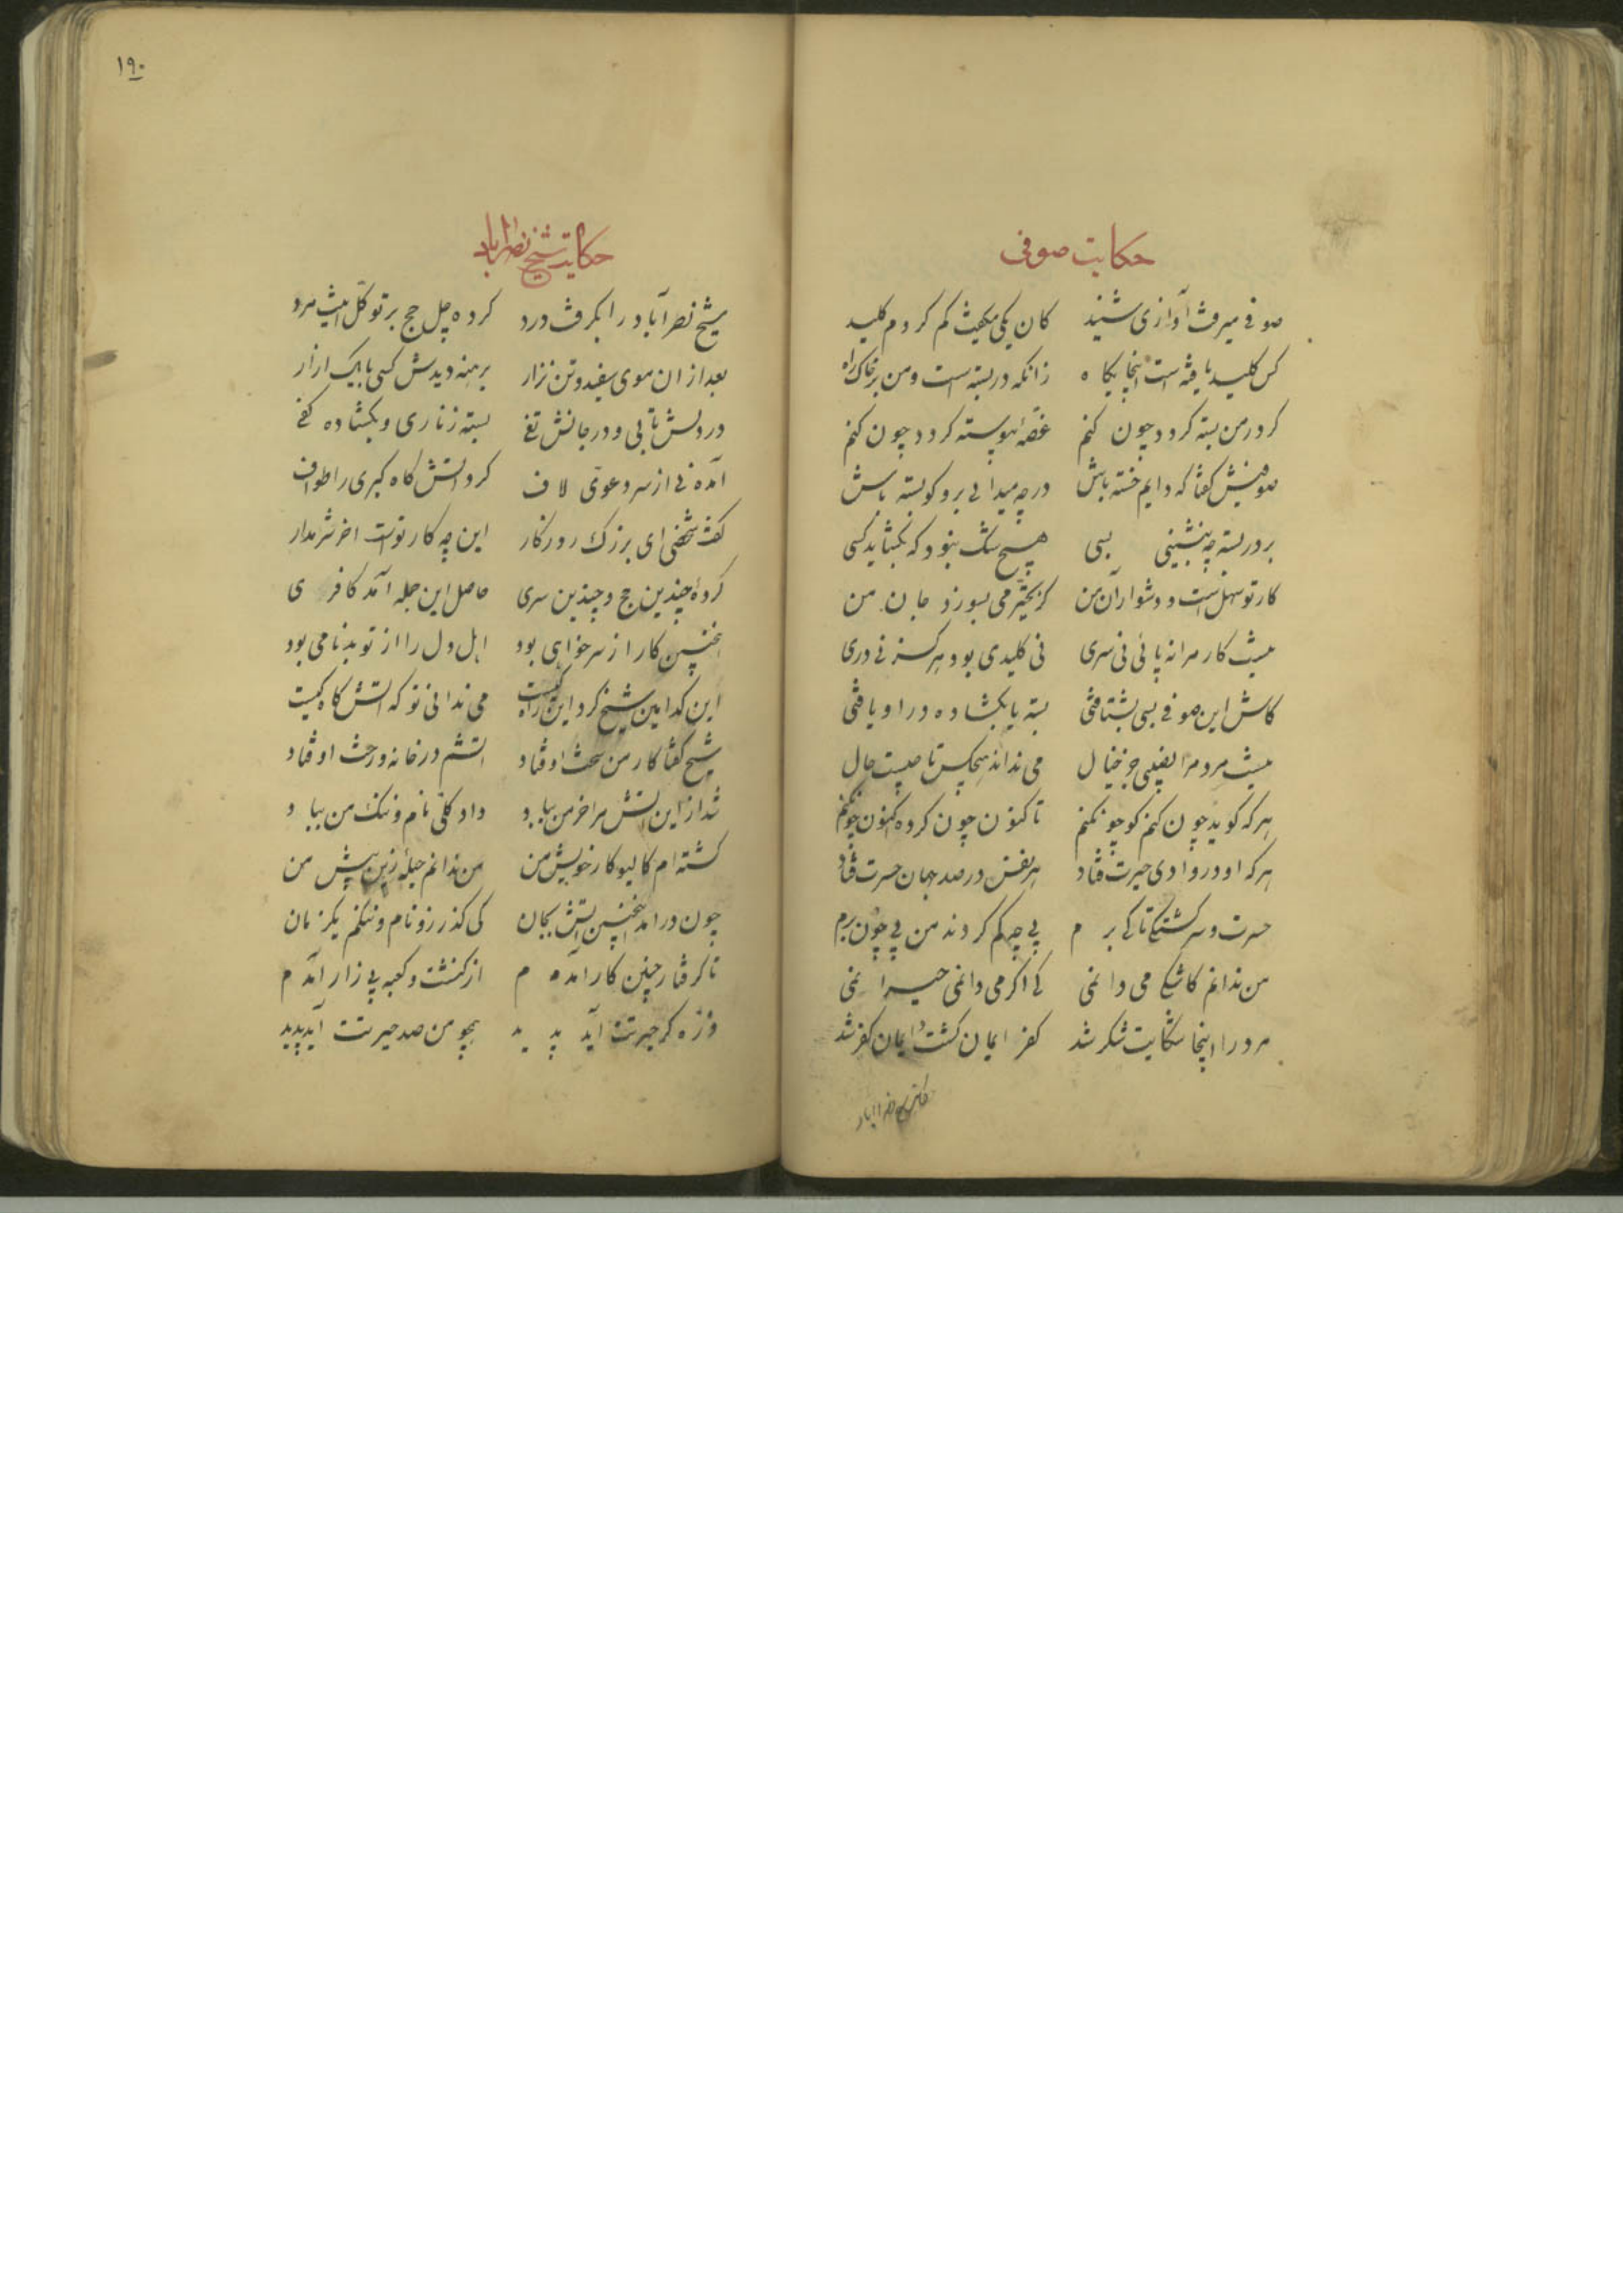 حکایت صوفی
صوفی میرفت آوازی شنید کان یکی میگفت گم کردم کلید
کس کلید یافته است اینجایگاه زانکه در بسته است و من بر خاک راه
گر در من بسته گردد چون کنم غصه پیوسته گردد چون کنم
صوفیش گفتا که دایم خسته باش در چو میدانی برو گو بسته باش
بر در بسته چو بنشینی بسی هیچ شک نبود که بگشاید کسی
کار تو سهل است و دشوار آن من کز تحیر می بسوزد جان من
نیست کارم را نه پائی نی سری نی کلیدی بود هرگز نی دری
کاش این صوفی بسی بشتافتی بسته یا بگشاده در او یافتی
نیست مردم را نصیبی جز خیال می نداند هیچکس تا چیست حال
هر که گوید چون کنم گو چون کنم تا کنون چون کرده اکنون چون کنم
هر که او در وادی حیرت فتاد هر نفس در صد جهان حسرت فتاد
حیرت و سرگشتگی تا کی برم پی چو گم کردند من پی چون برم
من ندانم کاشکی می دانمی که اگر می دانمی حیرانمی
مرد را اینجا شکایت شکر شد کفر ایمان گشت و ایمان کفر شد
حکایت شیخ نصراباد
۱۹۰
حکایت شیخ نصراباد
شیخ نصرآباد را بگرفت درد کرده چل حج بر توکل اینت مرد
بعد از ان موی سفید و تن نزار برهنه دیدش کسی با یک ازار
در دلش تابی و در جانش تفی بسته زناری و بگشاده کفی
آمده نی از سر دعوی لاف گرد اتش گاه گبری را طواف
گفت شخصی ای بزرک روزگار این چه کار توست اخر شرم دار
کردۀ چندین حج و چندین سری حاصل این جمله آمد کافری
اینچنین کار از سر خواهی بود اهل دل را از تو بدنامی بود
این کدامین شیخ کرد این راه کیست می ندانی تو که اتش گاه کیست
شیخ گفتا کار من سخت اوفتاد اتشم در خانه و رخت اوفتاد
شد از این اتش مرا خرمن بباد داد کلی نام و ننک من بباد
گشته ام کالیو کار خویش من من ندانم حیلۀ زین بیش من
چون درامد اینچنین اتش بجان کی گذارد نام و ننگم یکزمان
تا گرفتار چنین کار آمدم از کنشت و کعبه بیزار آمدم
ذره گر حیرتت آید پدید همچو من صد حیرتت آید پدید